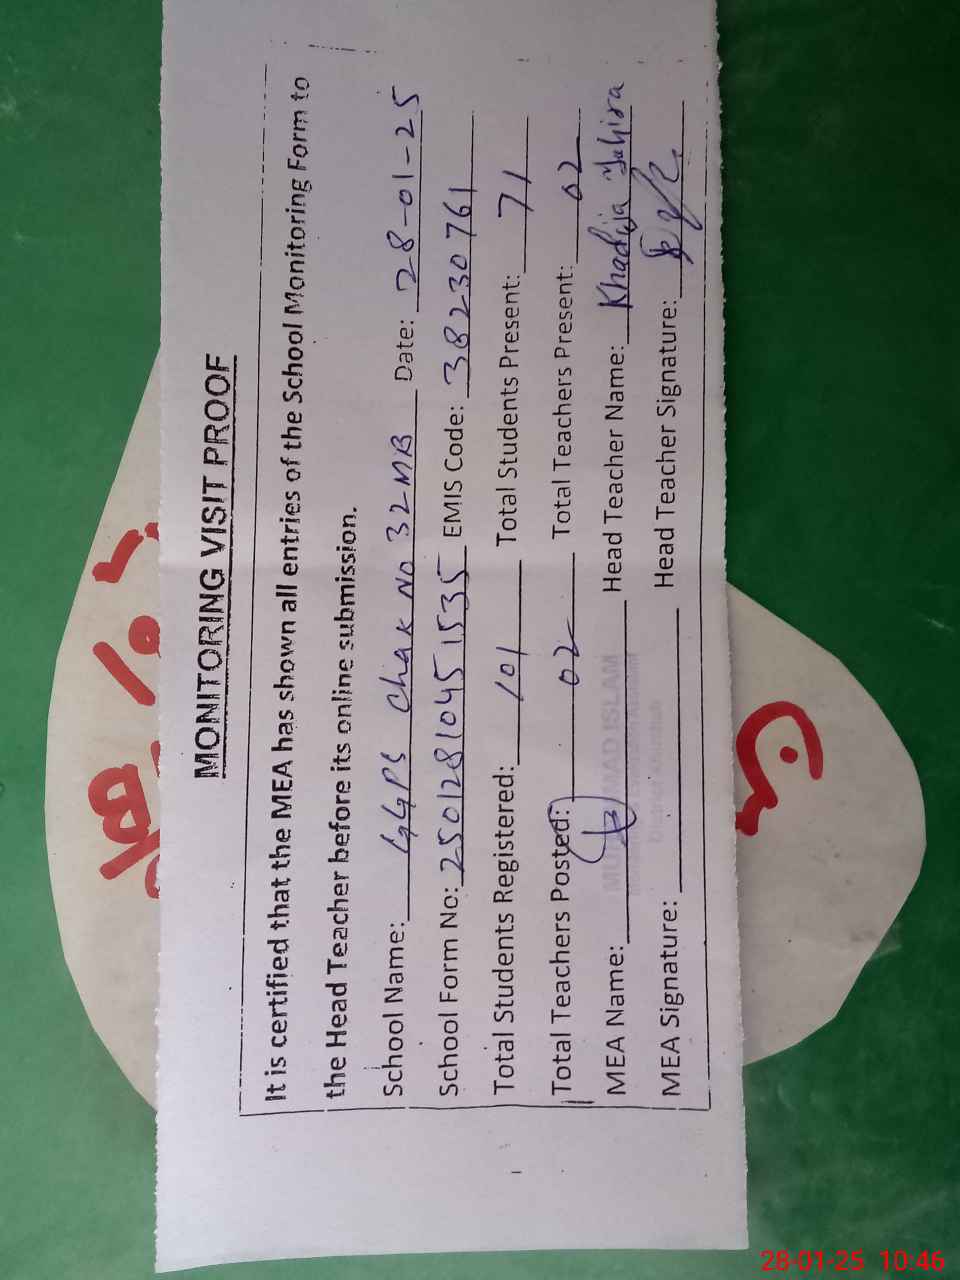 MONITORING VISIT PROOF
It is certified that the MEA has shown all entries of the School Monitoring Form to
the Head Teacher before its online submission.
School Name: GGPS Chak No 32MB Date: 28-01-25
School Form No: 25012810451535 EMIS Code: 38230761
Total Students Registered: 101 Total Students Present: 71
Total Teachers Posted: 02 Total Teachers Present: 02
MEA Name: Head Teacher Name: Khadija Tahira
MEA Signature: Head Teacher Signature:
28-01-25 10:46